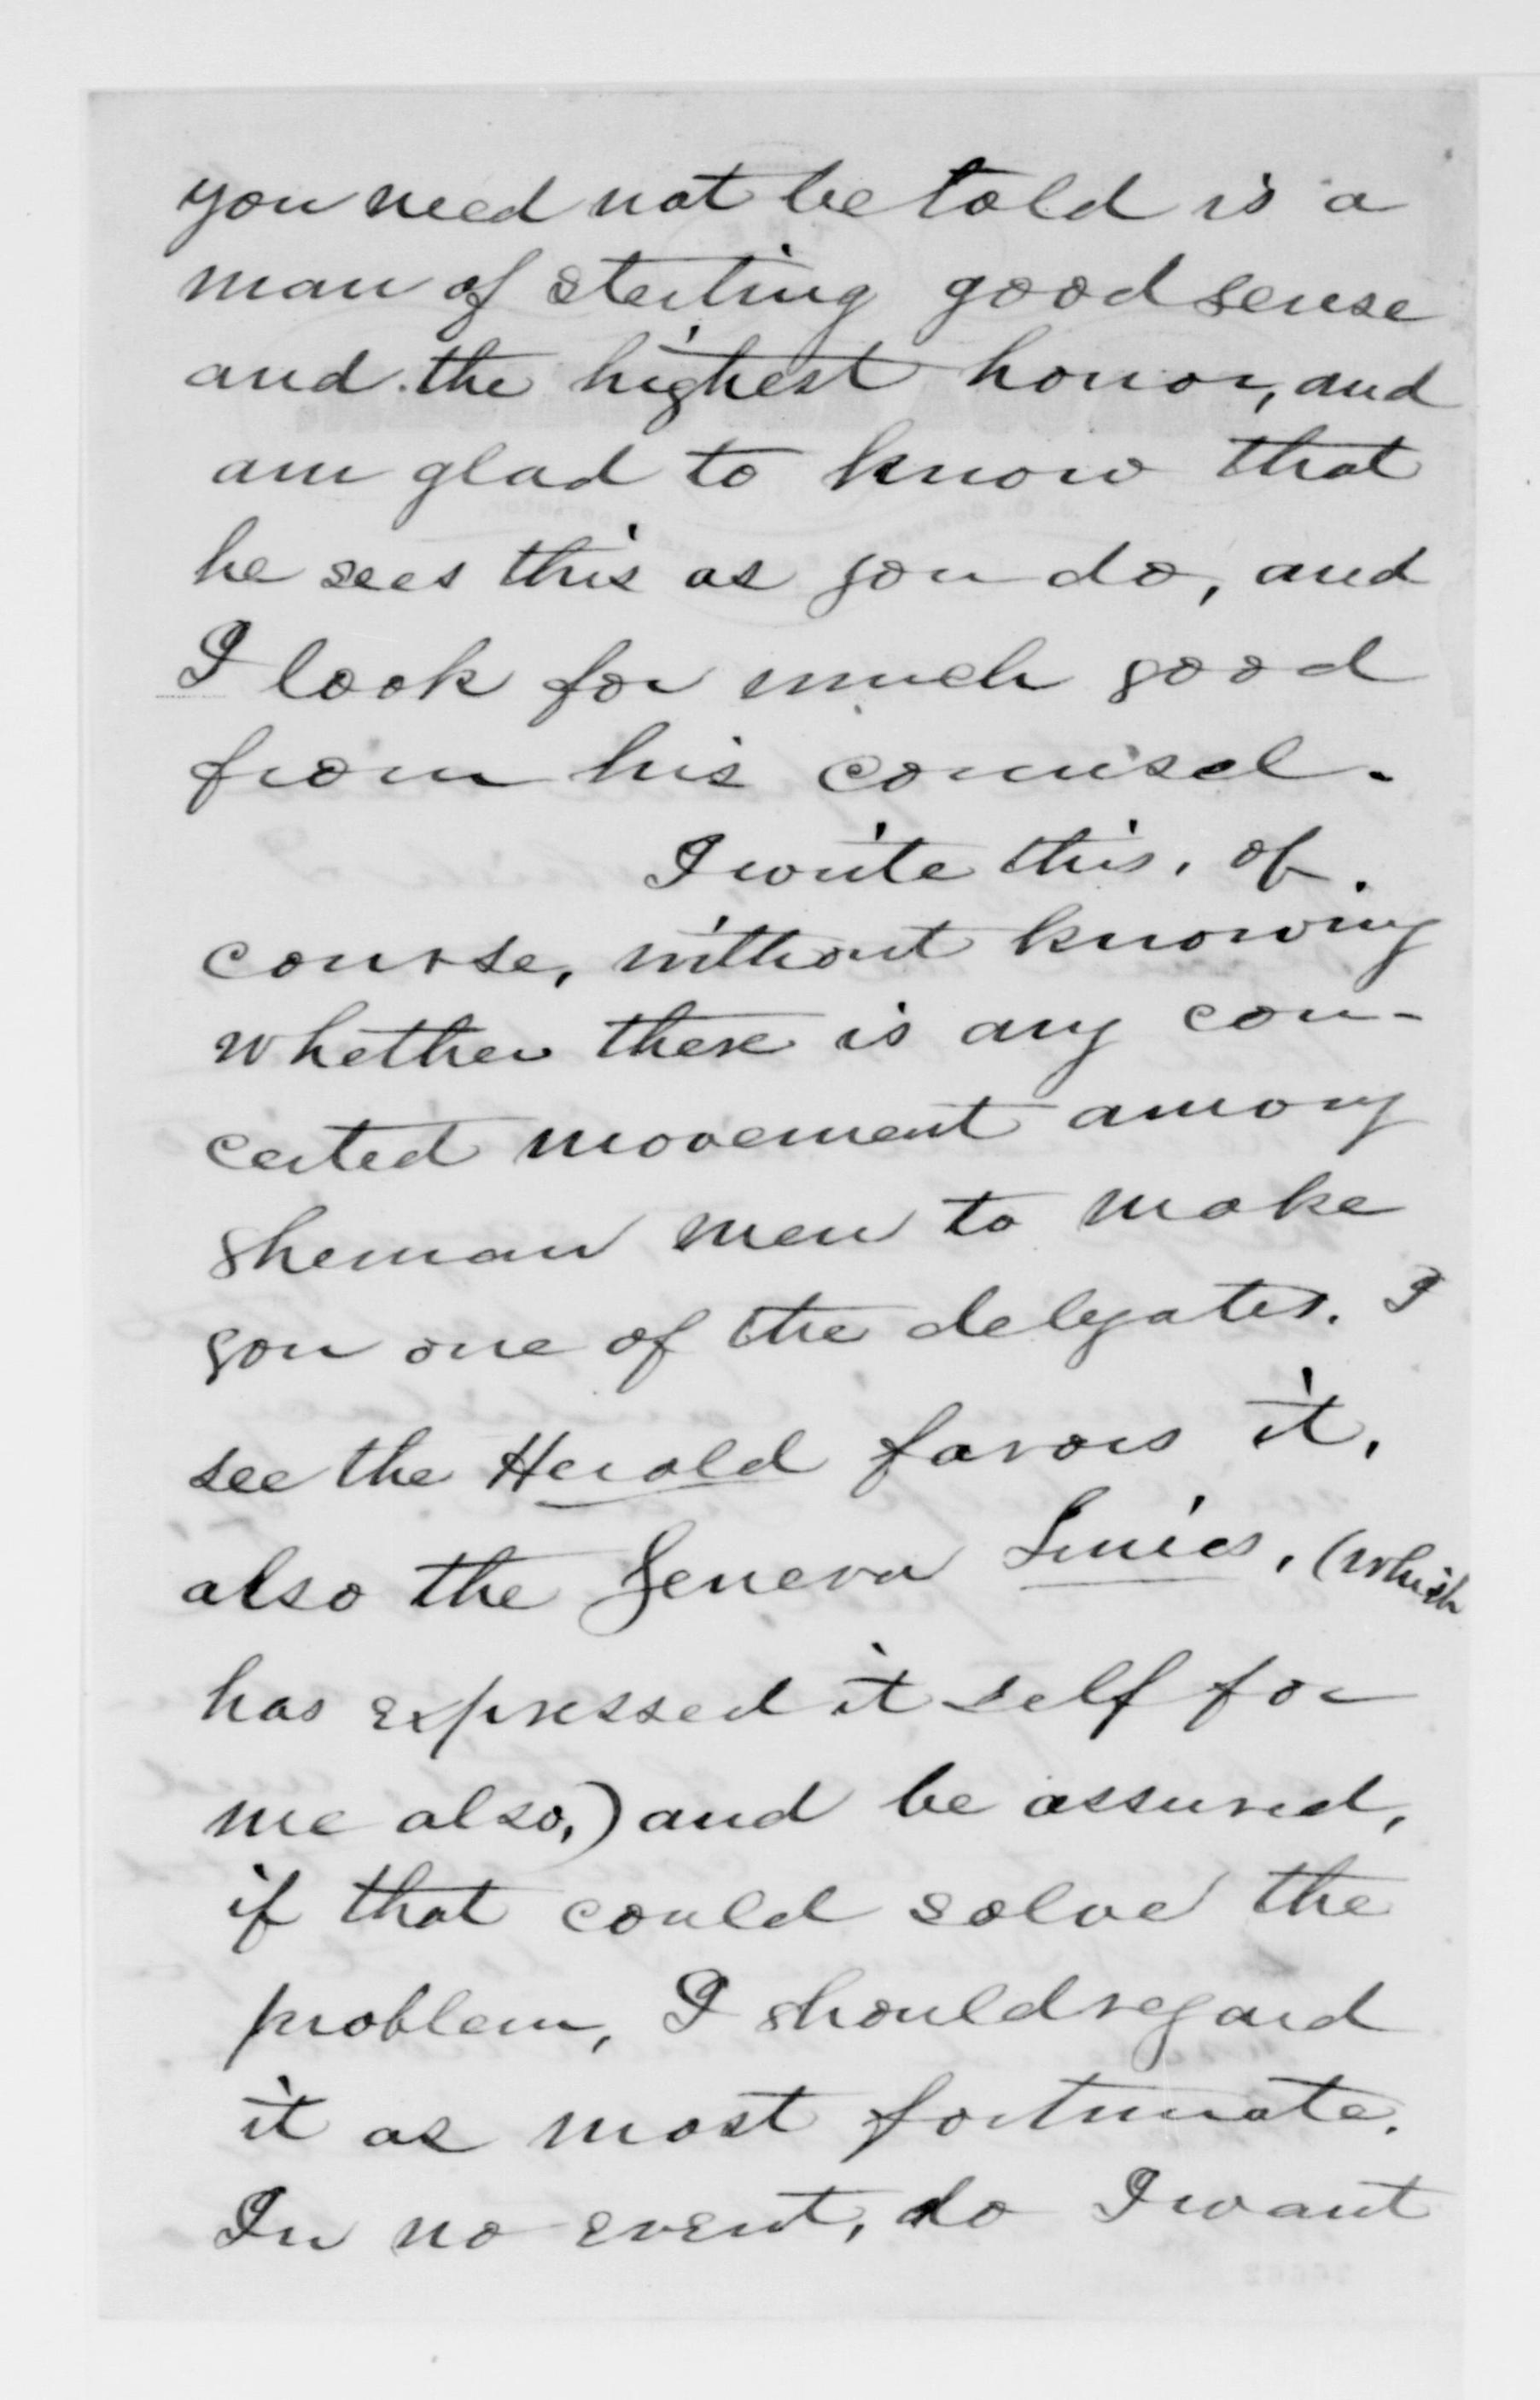 you need not be told is a
man of sterling good sense
and the highest honor, and
am glad to know that
he sees this as you do, and
I look for much good
from his counsel.
I write this, of
course, without knowing
whether there is any con-
certed movement among
Sherman men to make
you one of the delegates. I
see the Herald favors it,
also the Geneva Times, (which
has expressed it self for
me also,) and be assured,
if that could solve the
problem, I should regard
it as most fortunate.
In no event, do I want